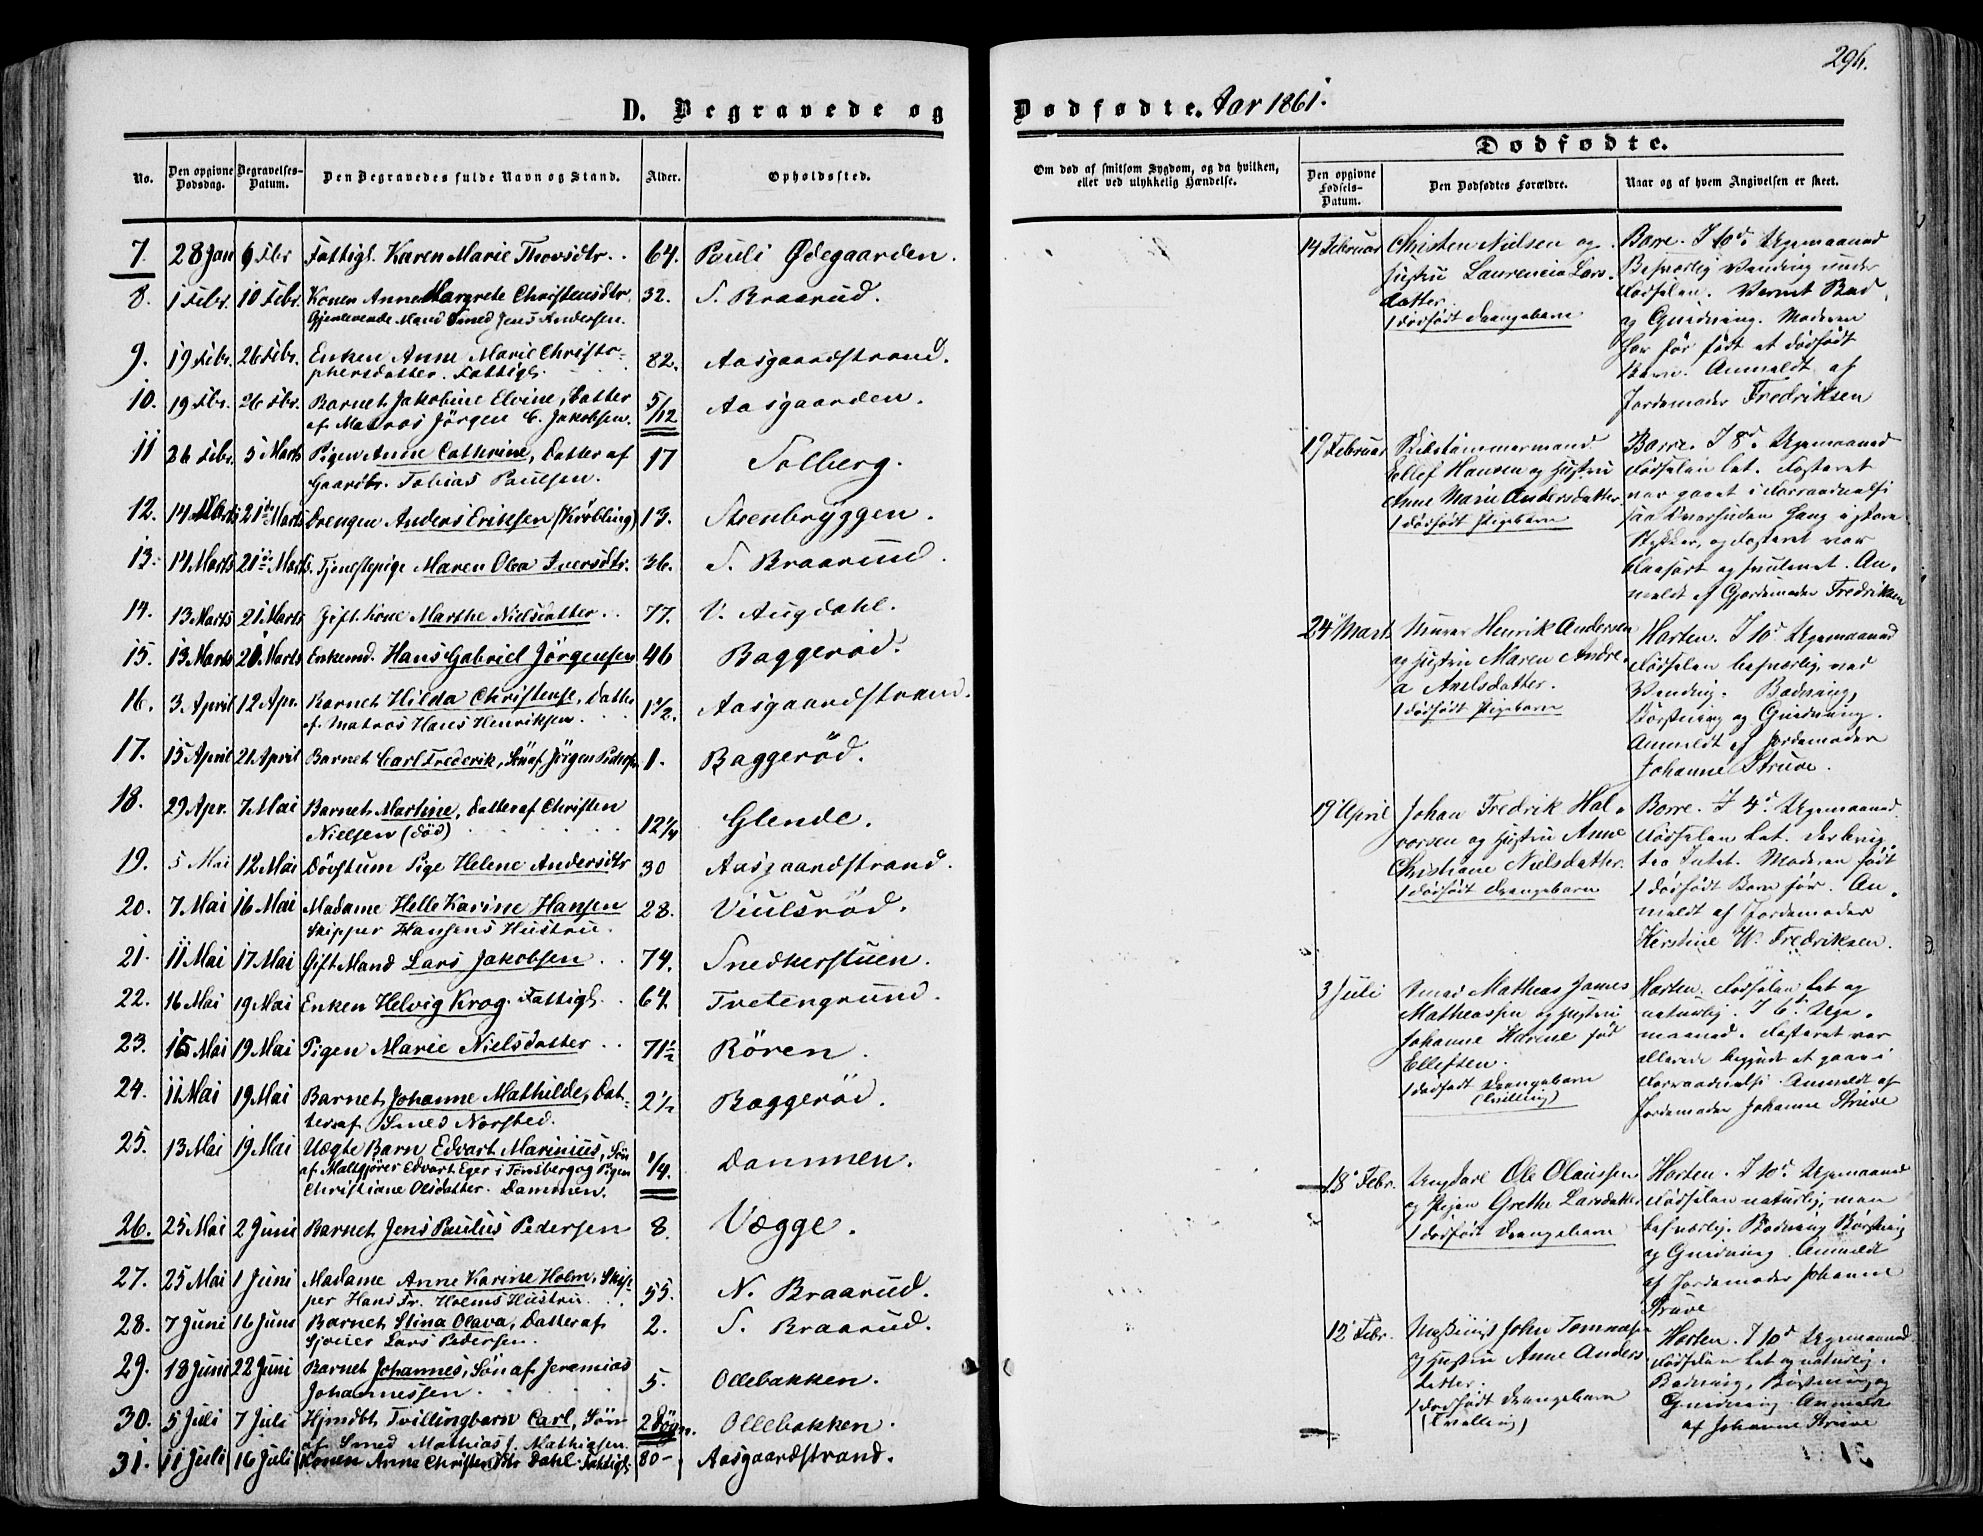 296.
D. Begravede og
Dødfødte. Aar 1861.
No.
Den opgivne Dødsdag.
Begravelses-Datum.
Den Begravedes fulde Navn og Stand.
Alder.
Opholdssted.
7. 28 Jan 6 Febr Fattigl. Karen Marie Thorsdtr. 64. Pauli Ødegaarden.
8. 1 Febr. 10 Febr. Konen Anne Margrete Christensdtr. 32. S. Braarud.
Gjenlevende Mand Smed Jens Andersen.
9. 19 Febr. 26 Febr. Enken Anne Marie Christo- 82. Aasgaardstrand.
phersdatter. Fattigl.
10. 19 Febr. 26 Febr. Barnet Jakobine Elvine, Datter 5/12 Aasgaarden.
af Matros Jörgen C. Jakobsen.
11 26 Febr. 5 Marts Pigen Anne Cathrine, Datter af 17 Solberg.
Gaardbr. Tobias Paulsen.
12. 14 Marts 21 Marts Drengen Anders Eriksen (Krøbling) 13. Steenbryggen.
13. 14 Marts 21 Marts. Tjenestepige Maren Olea Iversdtr. 36. S. Braarud.
14. 13 Marts 21 Marts Gift Kone Marthe Nielsdatter 77. V. Augdahl.
15. 13 Marts 21 Marts Enkemd. Hans Gabriel Jörgensen 46 Baggeröd.
16. 3 April 12 Apr. Barnet Hilda Christense, Datter 1 1/2. Aasgaardstrand.
af Matros Hans Henriksen.
17. 15 April 21 April Barnet Carl Frederik, Sön af Jörgen Peders. 1. Baggeröd.
18. 29 Apr. 7 Mai Barnet Martine, Datter af Christen 12 1/4 Glende.
Nielsen (död)
19. 5 Mai 12 Mai Dövstum Pige Helene Andersdtr 30 Aasgaardstrand.
20. 7 Mai 16 Mai Madame Helle Karine Hansen 28. Viulsröd.
Skipper Hansens Hustru.
21. 11 Mai 17 Mai Gift Mand Lars Jakobsen 74. Snedkerstuen.
22. 16 Mai 19 Mai Enken Helvig Krog. Fattigl. 64. Tvetengrund.
23. 15 Mai 19 Mai Pigen Marie Nielsdatter 71 1/2 Rören.
24. 11 Mai 19 Mai Barnet Johanne Mathilde, Dat- 2 1/2 Baggeröd.
ter af Smed Norsted.
25. 13 Mai 19 Mai Uægte Barn Edvart Marinius, Sön 1/4. Dammen.
af Maltgjörer Edvart Eger i Tønsberg og Pigen
Christiane Olsdatter. Dammen.
26. 25 Mai 2 Juni Barnet Jens Paulus Pedersen 8. Vægge.
27. 25 Mai 1 Juni Madame Anne Karine Holm, Skip- 55. N. Braarud.
per Hans Fr. Holms Hustru.
28. 7 Juni 16 Juni Barnet Stina Olava, Datter af 2. S. Braarud.
Sjouer Lars Pedersen.
29. 18 Juni 22 Juni Barnet Johannes, Sön af Jeremias 5. Ollebakken.
Johannessen.
30. 5 Juli 7 Juli Hjmdbt. Tvillingbarn Carl, Sön 2 Dögn. Ollebakken.
af Smed Mathias J. Mathiasen.
31. 11 Juli 16 Juli Konen Anne Christensdtr Dahl. Fattigl. 80 Aasgaardstrand.
Om død af smitsom Sygdom, og da hvilken,
eller ved ulykkelig Hændelse.
Dødfødte.
Den opgivne Fødsels-Datum.
Den Dødfødtes Forældre.
Naar og af hvem Angivelsen er skeet.
14 Februar
Christen Nielsen og
Hustru Laurencia Lars-
datter.
1 dödfödt Drengebarn
Borre. I 10d. Ugemaaned
Besværlig Vending under
Födselen. Varmt Bad
og Gnidning. Moderen
har för födt et dödfödt
Barn. Anmeldt af
Jordemoder Fredriksen
19 Februar
Skibstömmermand
Ellef Hansen og Hustru
Anne Marie Andersdatter
1 dödfödt Pigebarn
Borre. I 8d. Ugemaaned
Födselen let. Fosteret
var gaaet i Forraadnelse
saa Overhuden hang i store
Stykker, og Fosteret var
blaasort og svulmet. An-
meldt af Gjordemoder Fredriksen
24 Marts
Murer Henrik Andersen
og Hustru Maren Andre-
a Axelsdatter.
1 dödfödt Pigebarn
Horten. I 10d Ugemaaned
Födselen besværlig, ved
Vending. Badning,
Börstning og Gnidning.
Anmeldt af Jordemoder
Johanne Struve.
19 April
Johan Fredrik Hal-
vorsen og Hustru Anne
Christiane Nielsdatter.
1 dödfödt Drengebarn
Borre. I 4d Ugemaaned.
Födselen let.
Intet. Moderen födt
1 dödfödt Barn för. An-
meldt af Jordemoder
Kirstine W. Fredriksen.
3 Juli
Smed Mathias James
Matheassen og Hustru
Johanne Karine född
Ellefsen.
1 dödfödt Drengebarn
(Tvilling)
Horten. Födselen let og
naturlig. I 6te Uge-
maaned. Fosteret var
allerede begyndt at gaae i
Forraadnelse. Anmeldt af
Jordemoder Johanne Struve
18 Febr.
Ungkarl Ole Olaussen
og Pigen Grethe Larsdatter
1 dödfödt Drengebarn
Horten. I 10d Ugemaaned
Födselen naturlig, men
besværlig. Badning Börstning
og Gnidning. Anmeldt
af Jordemoder Johanne
Struve
12 Febr.
John Tommasen
og Hustru Anne Anders
datter.
1 dödfödt Drengebarn
(Tvilling)
Horten. I 10d Ugemaaned
Födselen let og naturlig.
Badning, Börstning og
Gnidning. Anmeldt
af Johanne Struve